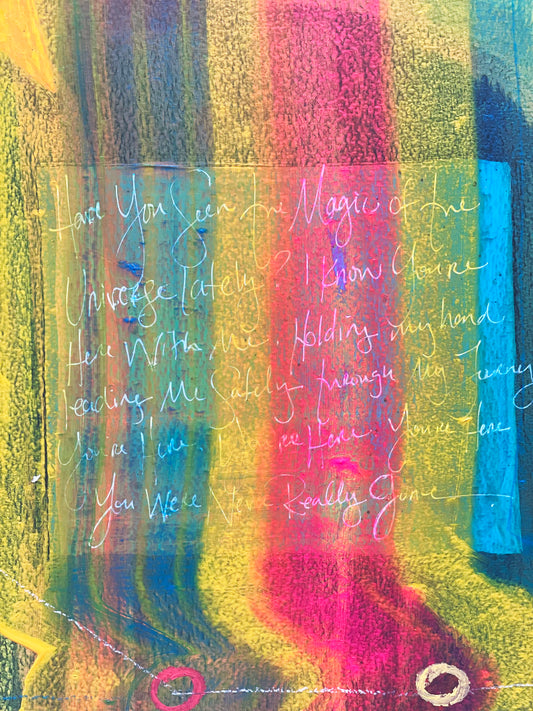 Have You Seen the Magic of the
Universe Lately? I Know You're
Here With Me. Holding my hand
Leading Me Safely through My Journey
You're Here. You're Here. You're Here
You Were Never Really Gone